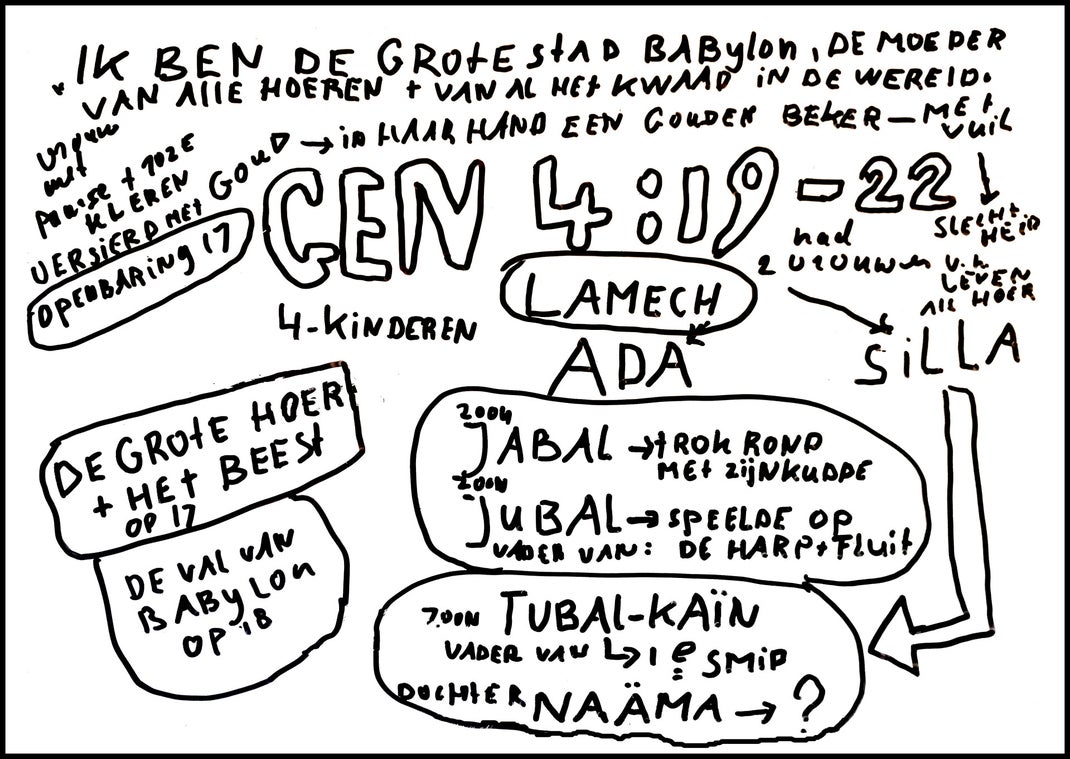 "IK BEN DE GROTE STAD BABYLON, DE MOEDER
VAN ALLE HOEREN + VAN AL HET KWAAD IN DE WERELD.
vrouw
met
paarse + roze
KLEREN
VERSIERD MET GOUD → in HAAR HAND EEN GOUDEN BEKER — MET
vuil
↓
SLECHTHEID
v.h
LEVEN
ALS HOER
OPENBARING 17
GEN 4:19-22
had
2 vrouwen
LAMECH
4-KINDEREN
ADA
SILLA
zoon
JABAL → tROK ROND
MET ZIJN KUDDE
zoon
JUBAL → SPEELDE OP
VADER VAN: DE HARP + Fluit
zoon TUBAL-KAÏN
VADER VAN ↳ 1e SMID
DOCHTER NAÄMA → ?
DE GROTE HOER
+ HET BEEST
OP 17
DE VAL VAN
BABYLON
OP 18